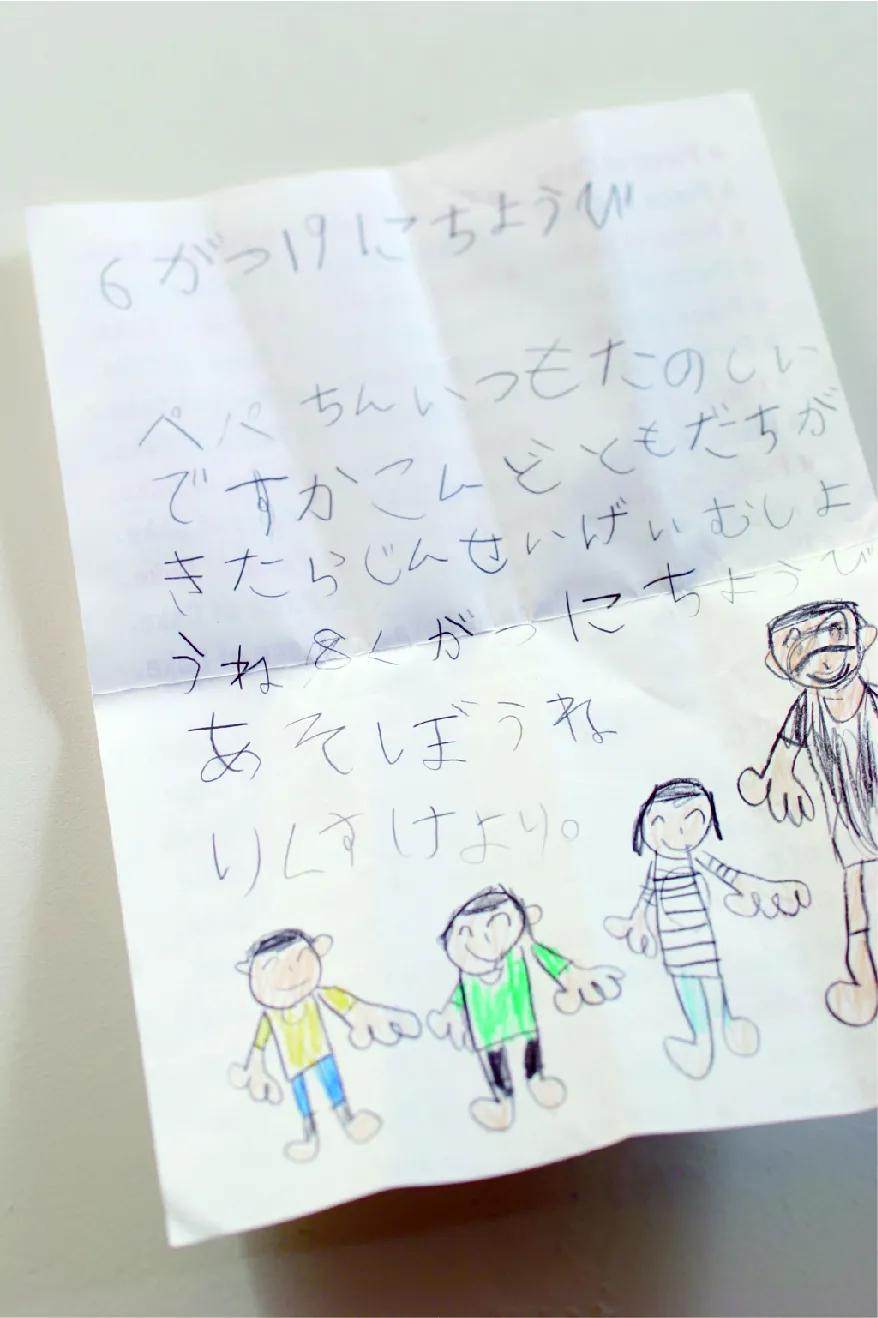 6がつ19にちようび
ペパちんいつもたのしい
ですかこんどともだちが
きたらじんせいげいむしよ
うね8くがつにちようび
あそぼうね
りくすけより。